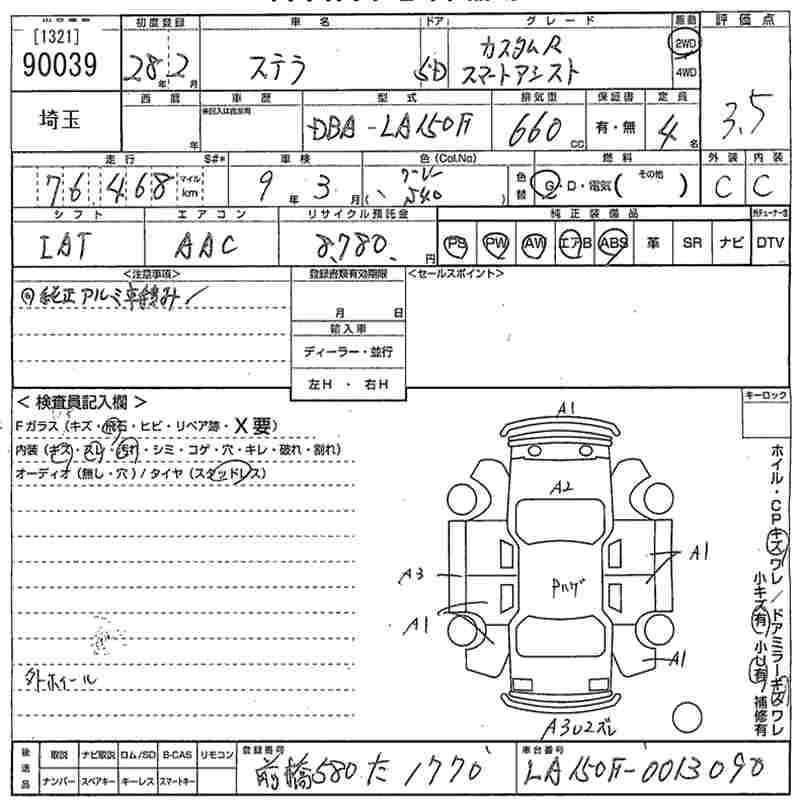 [1321]
90039
初度登録
28年2月
車名
ステラ
ドア
5D
グレード
カスタムR
スマートアシスト
駆動
2WD
4WD
評価点
3.5
埼玉
西暦
年
車歴
型式
DBA-LA150F
排気量
660cc
保証書
有・無
定員
4名
走行
76468
マイル
km
S#*
車検
9年3月
色(Col.No)
540
色替
燃料
G・D・電気(その他)
外装
C
内装
C
シフト
IAT
エアコン
AAC
リサイクル預託金
8,780円
純正装備品
PS PW AW エアB ABS 革 SR ナビ DTV
<注意事項>
純正アルミ車積み
登録書類有効期限
月 日
輸入車
ディーラー・並行
左H・右H
<セールスポイント>
<検査員記入欄>
Fガラス(キズ・飛石・ヒビ・リペア跡・X要)
内装(キズ・スレ・汚れ・シミ・コゲ・穴・キレ・破れ・割れ)
オーディオ(無し・穴)/タイヤ(スタッドレス)
外ホイール
キーロック
A1
A2
A3
A1
Pハゲ
A1
A1
A3U2ズレ
ホイル・CPキズワレ/ドアミラーキズワレ
小キズ有 小U有 補修有
後送品
取説 ナビ取説 ロム/SD B-CAS リモコン
ナンバー スペアキー キーレス スマートキー
登録番号
前橋580た1770
車台番号
LA150F-0013090